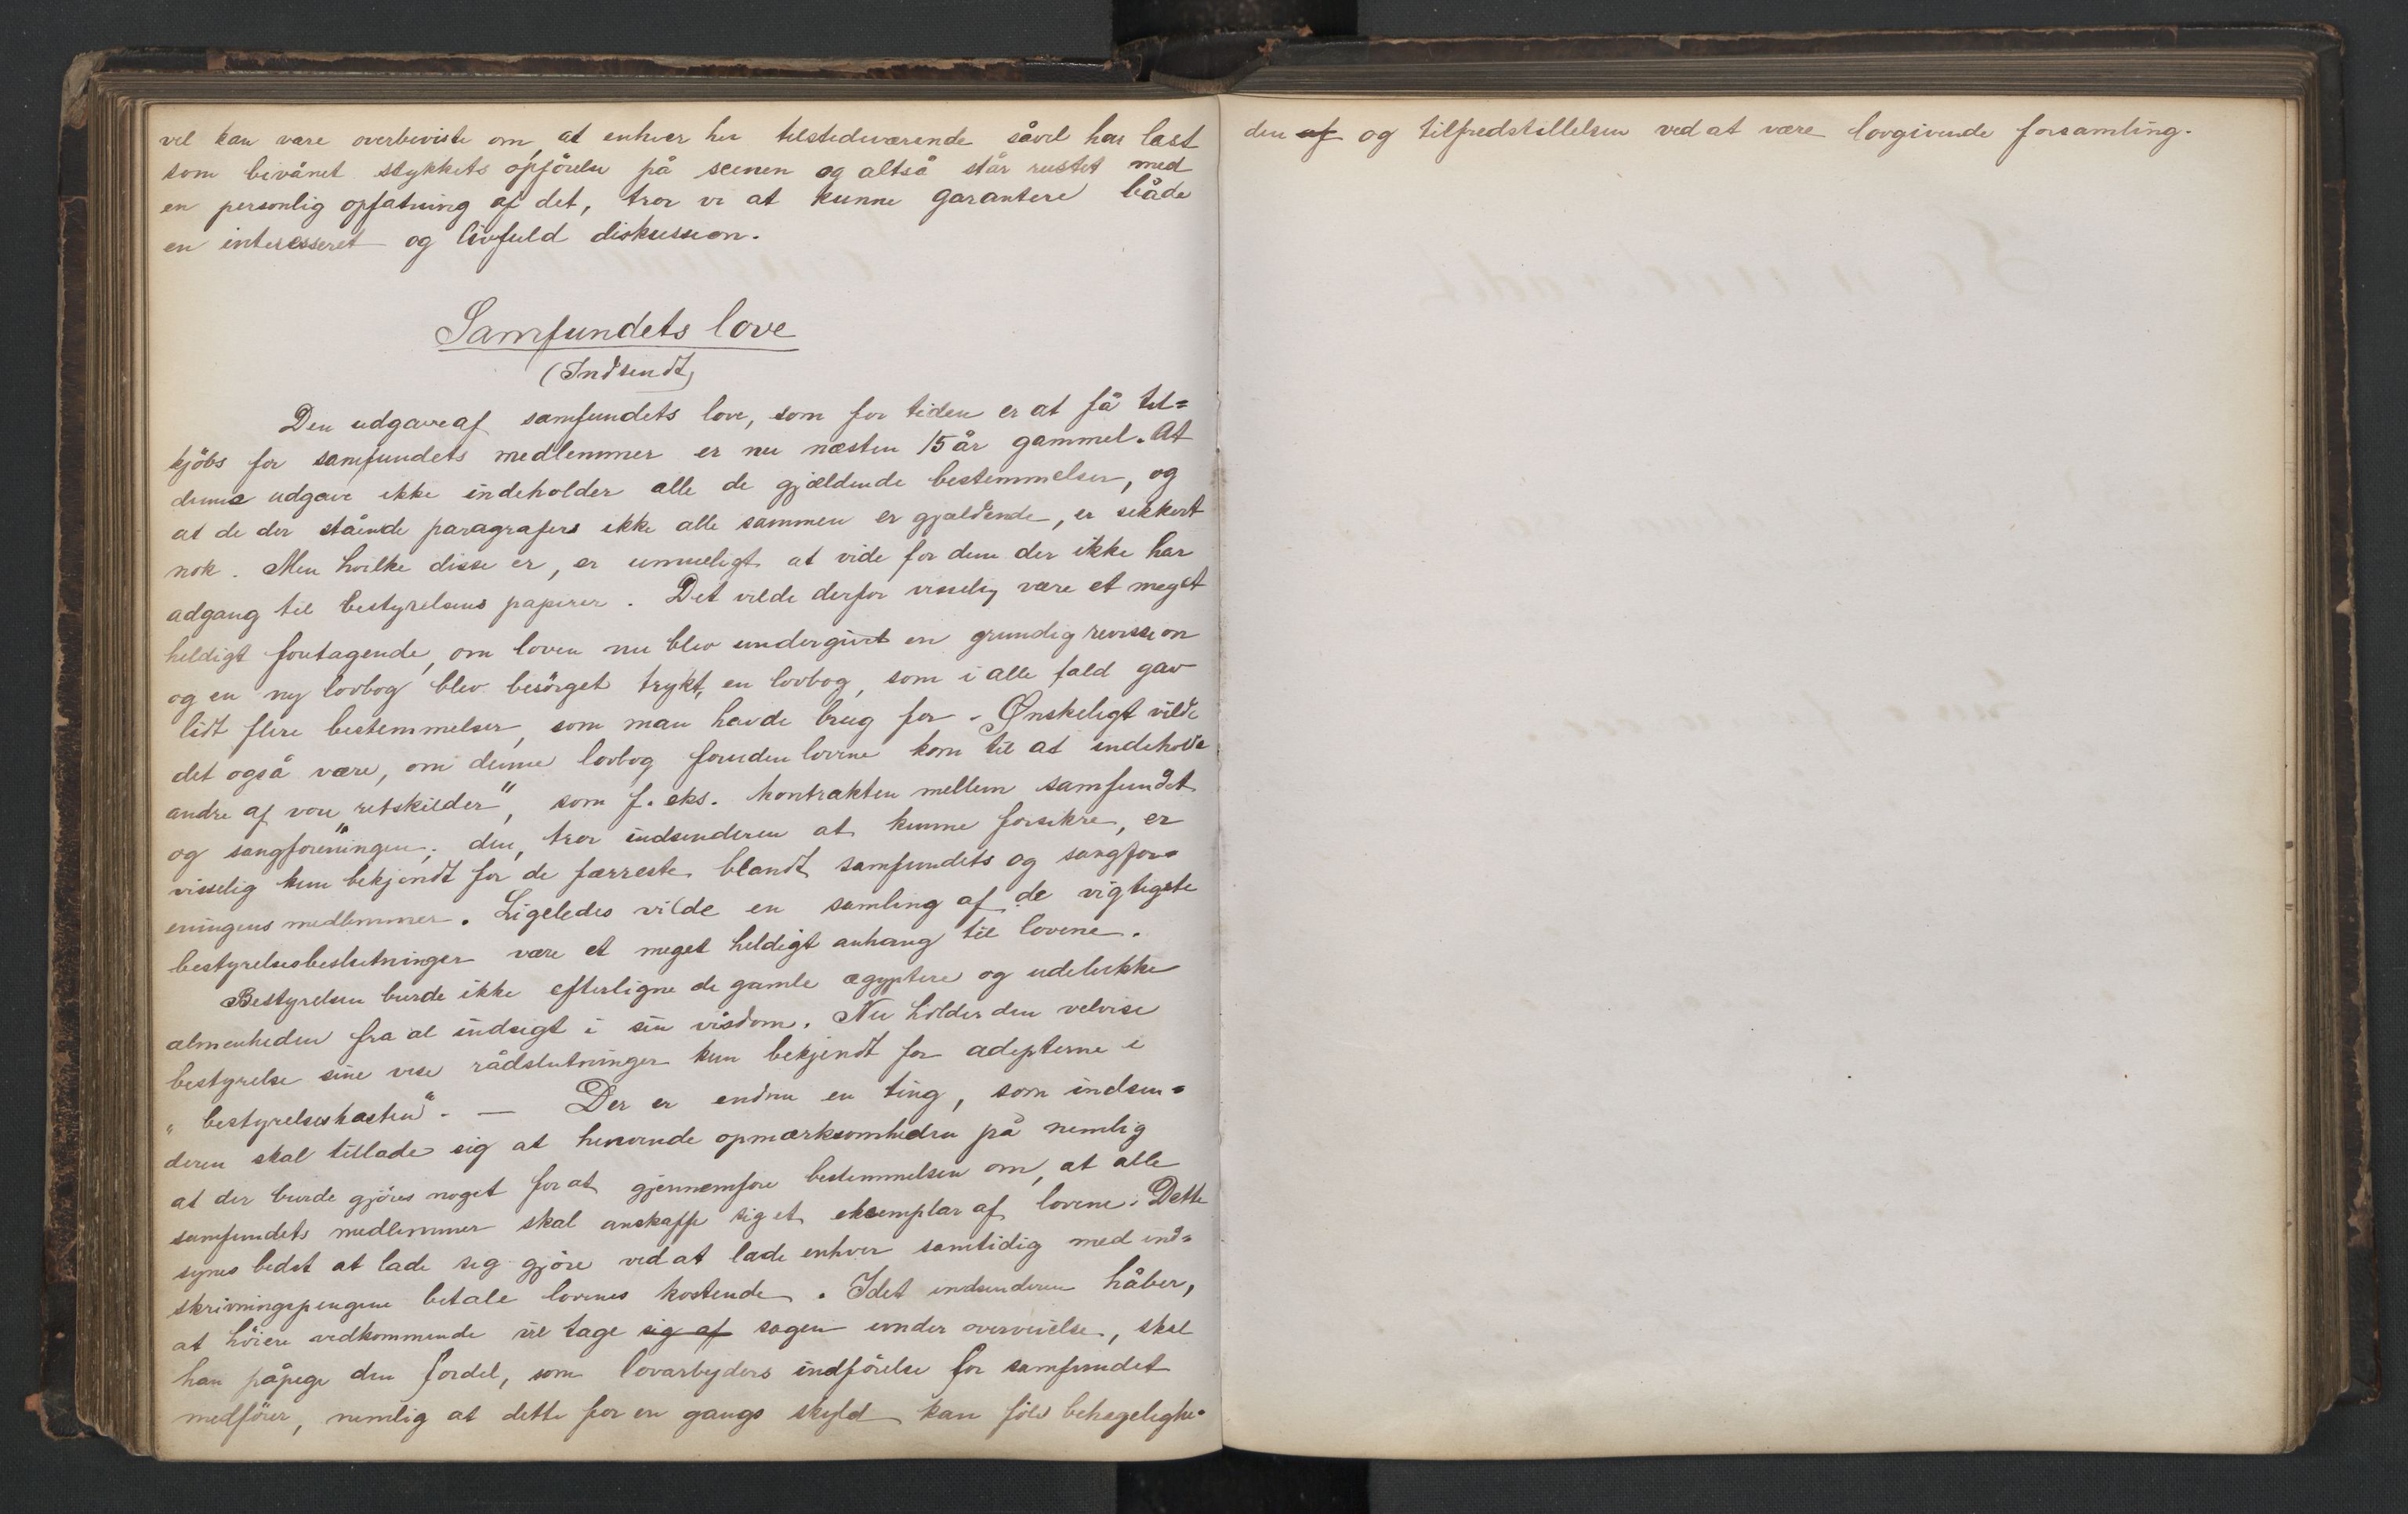 vel kan være overbeviste om, at enhver her tilstedeværende såvel har læst
som bivånet stykkets opförelse på scenen og altså står rustet med
en personlig opfatning af det, tror vi at kunne garantere både
en interesseret og livfuld diskussion.
Samfundets love
(Indsendt)
Den udgave af samfundets love, som for tiden er at få til=
kjöbs for samfundets medlemmer er nu næsten 15 år gammel. At
denne udgave ikke indeholder alle de gjældende bestemmelser, og
at de der stående paragrafers ikke alle sammen er gjældende, er sikkert
nok. Men hvilke disse er, er umueligt at vide for dem der ikke har
adgang til bestyrelsens papirer. Det vilde derfor visselig være et meget
heldigt foretagende, om loven nu blev undergivet en grundig revission
og en ny lovbog blev besörget trykt, en lovbog, som i alle fald gav
lidt flere bestemmelser, som man havde brug for. Ønskeligt vilde
det også være, om denne lovbog foruden lovene kom til at indeholde
andre af vore „retskilder", som f. eks. kontrakten mellem samfundet
og sangforeningen; den, tror indsenderen at kunne forsikre, er
visselig kun bekjendt for de færreste blandt samfundets og sangfor=
eningens medlemmer. Ligeledes vilde en samling af de vigtigste
bestyrelsesbeslutninger være et meget heldigt anhang til lovene.
Bestyrelsen burde ikke efterligne de gamle ægyptere og udelukke
almenheden fra al indsigt i sin visdom. Nu holder den velvise
bestyrelse sine vise rådslutninger kun bekjendt for adepterne i
„bestyrelseskasten". — Der er endnu en ting, som indsen=
deren skal tillade sig at henvende opmærksomheden på nemlig
at der burde gjöres noget for at gjennemföre bestemmelsen om, at alle
samfundets medlemmer skal anskaffe sig et eksemplar af lovene. Dette
synes bedst at lade sig gjöre ved at lade enhver samtidig med ind=
skrivningspengene betale lovenes kostende. Idet indsenderen håber,
at höiere vedkommende vil tage sig af sagen under overveielse, skal
han påpege den fordel, som lovarbeiders indförelse for samfundet
medförer, nemlig at dette for en gangs skyld kan föle behagelighe=
den af og tilfredstillelsen ved at være lovgivende forsamling.